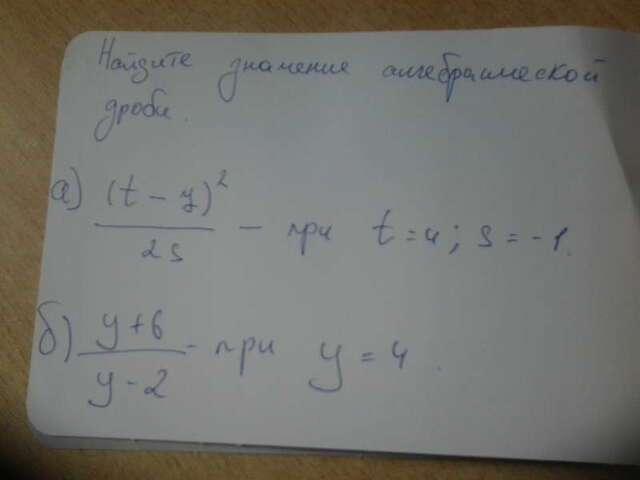 Найдите значение алгебраической
дроби.
а) (t - y)² / 2s - при t = 4; s = -1.
б) y + 6 / y - 2 - при y = 4.